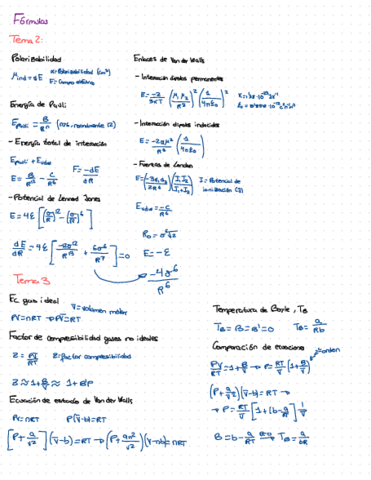 Fórmulas
Tema 2:
Polarizabilidad
μind = αE
α = Polarizabilidad (cm³)
E = Campo eléctrico
Energía de Pauli
Epauli = B/Rⁿ (n normalmente 12)
- Energía total de interacción
Epauli + Evdw
E = B/R¹² - C/R⁶
F = -dE/dR
- Potencial de Lennard Jones
E = 4ε[(σ/R)¹² - (σ/R)⁶]
dE/dR = 4ε[-12σ¹²/R¹³ + 6σ⁶/R⁷] = 0
Enlaces de Van der Walls
- Interacción dipolos permanentes
E = -2/3KT (μ₁μ₂/R³)² (1/4πε₀)²
- Interacción dipolos inducidos
E = -2αμ²/R⁶ (1/4πε₀)
- Fuerzas de London
E = (-3α₁α₂/2R⁶)(I₁I₂/I₁+I₂)
I = Potencial de ionización (J)
Evdw = -C/R⁶
R₀ = σ⁶√2
E = -ε
-4σ⁶/R⁶
Tema 3
Ec gas ideal
V̄ = volumen molar
PV = nRT → PV̄ = RT
Factor de compresibilidad gases no ideales
Z = PV̄/RT
Z: factor compresibilidad
Z ≈ 1 + B/V̄ ≈ 1 + B'P
Ecuación de estado de Van der Walls
PV = nRT P(V̄-b) = RT
[P + a/V̄²](V̄-b) = RT → (P + an²/V²)(V-nb) = nRT
Temperatura de Boyle, TB
TB = B = B' = 0 TB = a/Rb
Comparación de ecuaciones
PV̄/RT = 1 + B/V̄ → P = RT/V̄ [1 + B/V̄]
(P + a/V̄²)(V̄-b) = RT →
→ P = RT/V̄ [1 + (b - a/RT) 1/V̄]
B = b - a/RT → TB = a/bR